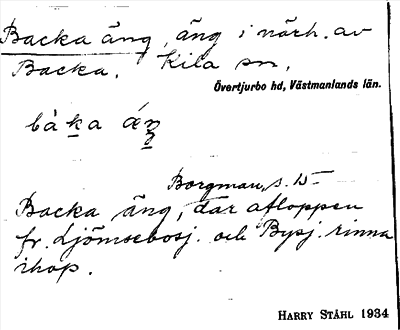 Backa äng, äng i närh. av
Backa. Kila sn,
Övertjurbo hd, Västmanlands län.
bàka ǽŋ
Borgman, s. 15
Backa äng, där afloppen
fr. Ljömsebosj. och Bysj. rinna
ihop.
HARRY STÅHL 1934